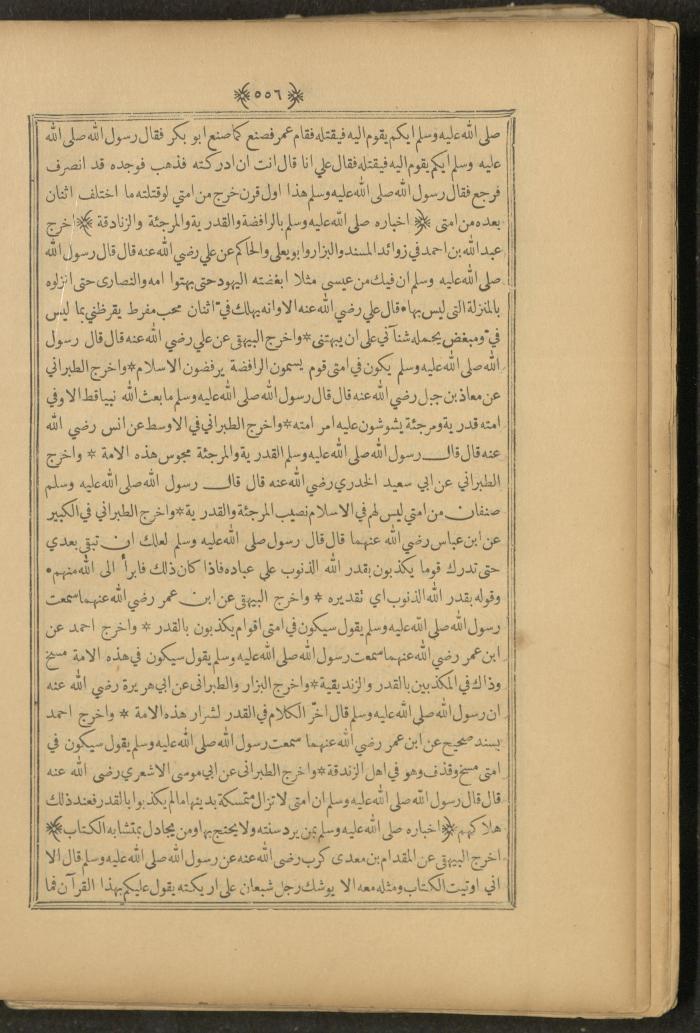 ﴿٥٥٦﴾
صلى الله عليه وسلم ايكم يقوم اليه فيقتله فقام عمر فصنع كما صنع ابو بكر فقال رسول الله صلى الله
عليه وسلم ايكم يقوم اليه فيقتله فقال علي انا قال انت ان ادركته فذهب فوجده قد انصرف
فرجع فقال رسول الله صلى الله عليه وسلم هذا اول قرن خرج من امتي لو قتلته ما اختلف اثنان
بعده من امتى ﴿ اخباره صلى الله عليه وسلم بالرافضة والقدرية والمرجئة والزنادقة ﴾ اخرج
عبد الله بن احمد في زوائد المسند والبزار وابو يعلى والحاكم عن علي رضي الله عنه قال قال رسول الله
صلى الله عليه وسلم ان فيك من عيسى مثلا ابغضته اليهود حتى بهتوا امه والنصارى حتى انزلوه
بالمنزلة التى ليس بها • قال علي رضي الله عنه الا وانه يهلك فيّ اثنان محب مفرط يقرظني بما ليس
فيّ ومبغض يحمله شنآني على ان يبهتنى * واخرج البيهقى عن علي رضي الله عنه قال قال رسول
الله صلى الله عليه وسلم يكون في امتى قوم يسمون الرافضة يرفضون الاسلام * واخرج الطبراني
عن معاذ بن جبل رضي الله عنه قال قال رسول الله صلى الله عليه وسلم ما بعث الله نبيا قط الا وفي
امته قدرية ومرجئة يشوشون عليه امر امته * واخرج الطبراني في الاوسط عن انس رضي الله
عنه قال قال رسول الله صلى الله عليه وسلم القدرية والمرجئة مجوس هذه الامة * واخرج
الطبراني عن ابي سعيد الخدري رضي الله عنه قال قال رسول الله صلى الله عليه وسلم
صنفان من امتي ليس لهم في الاسلام نصيب المرجئة والقدرية * واخرج الطبراني في الكبير
عن ابن عباس رضي الله عنهما قال قال رسول صلى الله عليه وسلم لعلك ان تبقى بعدي
حتى تدرك قوما يكذبون بقدر الله الذنوب على عباده فاذا كان ذلك فابرأ الى الله منهم •
وقوله بقدر الله الذنوب اي تقديره * واخرج البيهقى عن ابن عمر رضي الله عنهما سمعت
رسول الله صلى الله عليه وسلم يقول سيكون في امتى اقوام يكذبون بالقدر * واخرج احمد عن
ابن عمر رضي الله عنهما سمعت رسول الله صلى الله عليه وسلم يقول سيكون في هذه الامة مسخ
وذاك في المكذبين بالقدر والزنديقية * واخرج البزار والطبرانى عن ابي هريرة رضي الله عنه
ان رسول الله صلى الله عليه وسلم قال اخّر الكلام في القدر لشرار هذه الامة * واخرج احمد
بسند صحيح عن ابن عمر رضي الله عنهما سمعت رسول الله صلى الله عليه وسلم يقول سيكون في
امتى مسخ وقذف وهو في اهل الزندقة * واخرج الطبرانى عن ابي موسى الاشعري رضى الله عنه
قال قال رسول الله صلى الله عليه وسلم ان امتى لا تزال متمسكة بدينها ما لم يكذبوا بالقدر فعند ذلك
هلاكهم ﴿ اخباره صلى الله عليه وسلم بمن يرد سنته ولا يحتج بها ومن يجادل بمتشابه الكتاب ﴾
اخرج البيهقى عن المقدام بن معدى كرب رضى الله عنه عن رسول الله صلى الله عليه وسلم قال الا
اني اوتيت الكتاب ومثله معه الا يوشك رجل شبعان على اريكته يقول عليكم بهذا القرآن فما